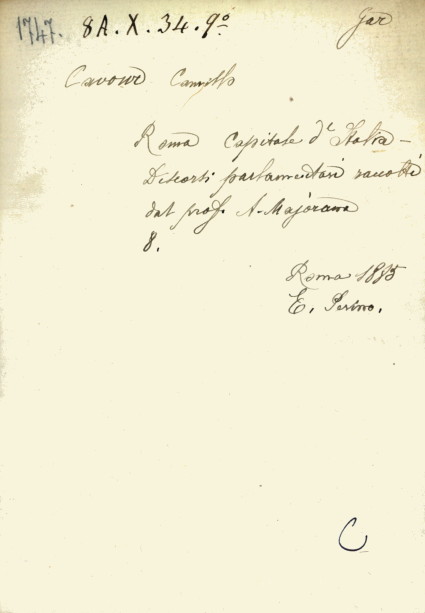 1747. 8A. X. 34. 9º Gar
Cavour Camillo
Roma Capitale d'Italia -
Discorsi parlamentari raccolti
dal prof. A. Majorana
8.
Roma 1885
E. Perino.
C